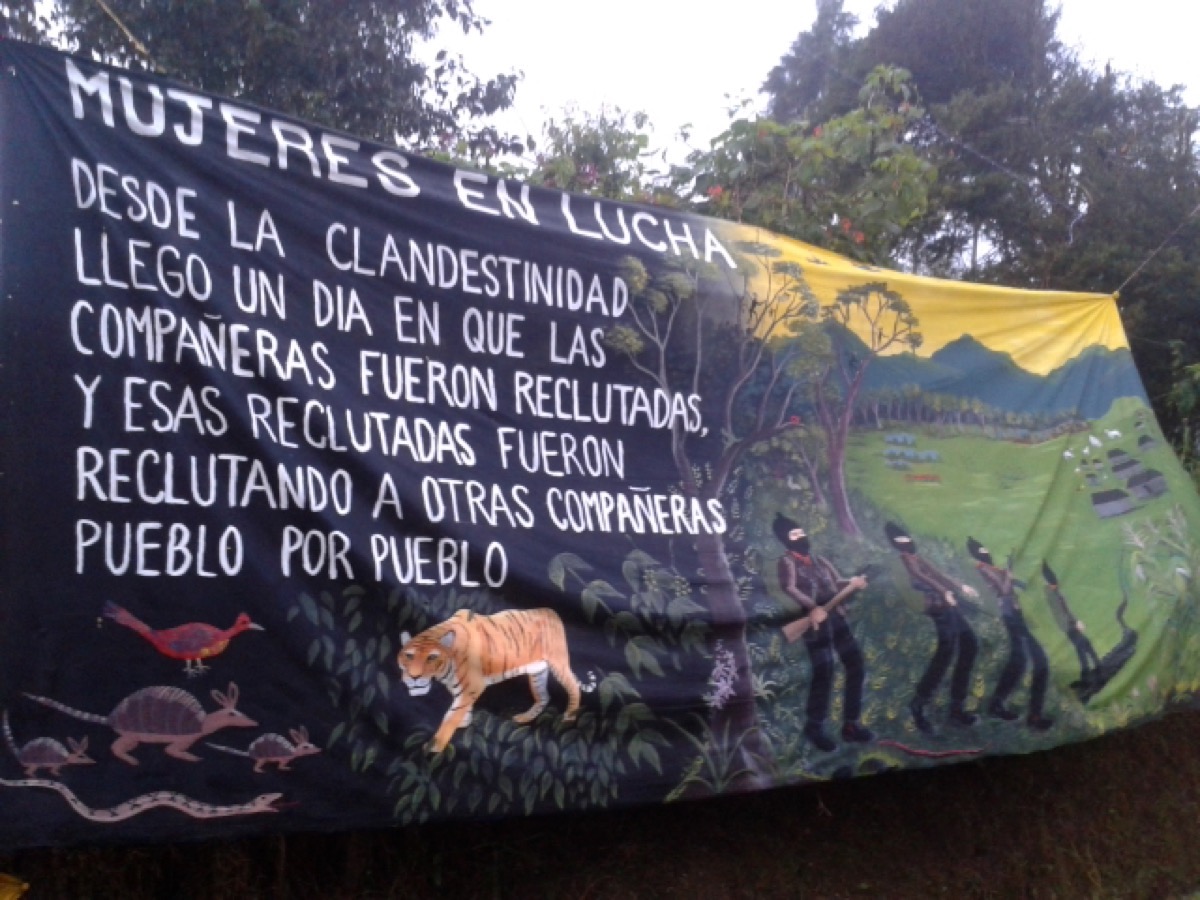 MUJERES EN LUCHA
DESDE LA CLANDESTINIDAD
LLEGO UN DIA EN QUE LAS
COMPAÑERAS FUERON RECLUTADAS,
Y ESAS RECLUTADAS FUERON
RECLUTANDO A OTRAS COMPAÑERAS
PUEBLO POR PUEBLO